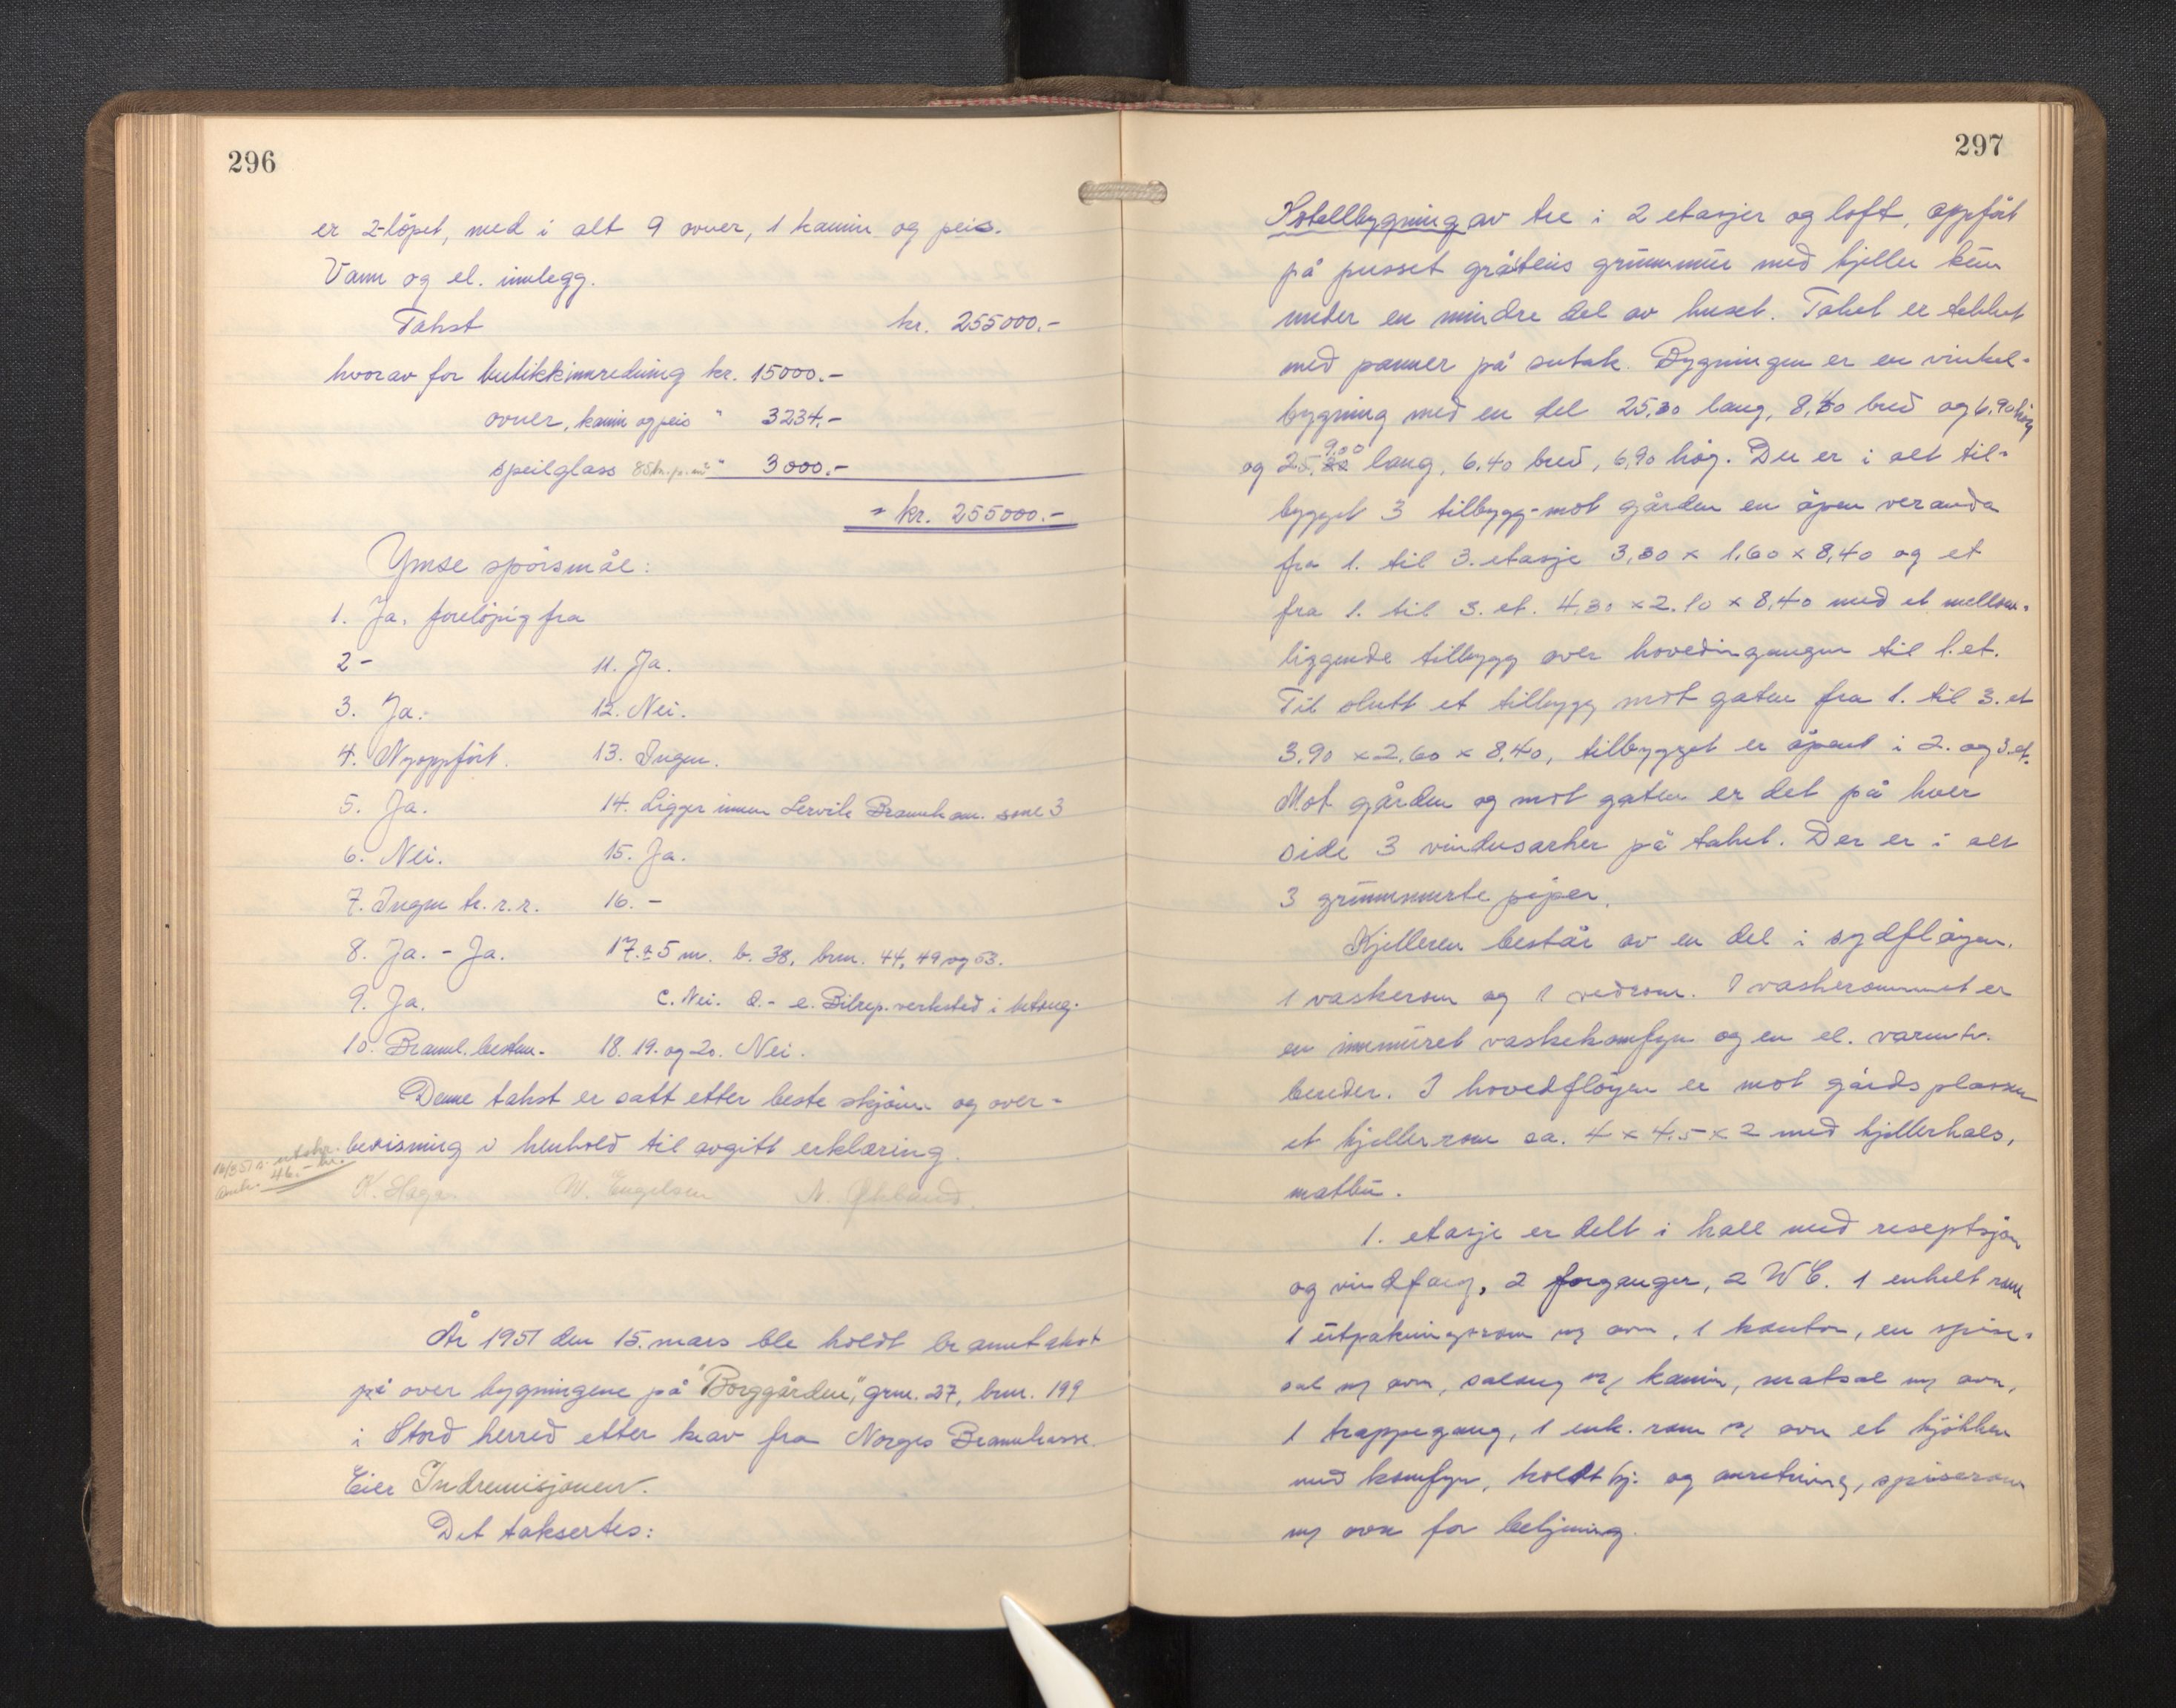 296
er 2-löpet, med i alt 9 ovner, 1 kamin og peis.
Vann og el. innlegg.
Takst kr. 255000.-
hvorav for butikkinnredning kr. 15000.-
ovner, kamin og peis " 3234.-
speilglass 85 kr. p. m² " 3000.-
kr. 255000.-
Ymse spörsmål:
1. Ja, forelöpig fra
2 - 11. Ja.
3. Ja. 12. Nei.
4. Nyoppfört. 13. Ingen.
5. Ja. 14. Ligger innen Lervik Brannkom. sone 3
6. Nei. 15. Ja.
7. Ingen kr. r. r. 16. -
8. Ja. - Ja. 17. ± 5 m. b. 38, brnr. 44, 49 og 53.
9. Ja. c. Nei. d. - e. Bilrep. verksted i betong.
10. Brannl. bestem. 18. 19. og 20. Nei.
Denne takst er satt etter beste skjönn og over-
bevisning i henhold til avgitt erklæring.
16/3 51 utskr. 46.- kr.
K. Haga W. Engelsen N. Økland.
År 1951 den 15. mars ble holdt branntakst
på over bygningene på "Borggården", grnr. 27, brnr. 199
i Stord herred etter krav fra Norges Brannkasse.
Eier Indremisjonen.
Det taksertes:
297
Hotellbygning av tre i 2 etasjer og loft, oppfört
på pusset gråsteins grunnmur med kjeller kun
under en mindre del av huset. Taket er tekket
med panner på sutak. Bygningen er en vinkel-
bygning med en del 25,30 lang, 8,40 bred og 6,90 hög
og 9.00 lang, 6.40 bred, 6,90 hög. Der er i alt til-
bygget 3 tilbygg - mot gården en åpen veranda
fra 1. til 3. etasje 3,30 x 1,60 x 8,40 og et
fra 1. til 3. et. 4.30 x 2.10 x 8,40 med et mellom-
liggende tilbygg over hovedingangen til 1. et.
Til slutt et tilbygg mot gaten fra 1. til 3. et
3.90 x 2,60 x 8,40, tilbygget er åpent i 2. og 3. et.
Mot gården og mot gaten er det på hver
side 3 vindusarker på taket. Der er i alt
3 grunnmurte piper.
Kjelleren består av en del i sydflöyen.
1 vaskerom og 1 vedrom. I vaskerommet er
en innmuret vaskekomfyr og en el. varmtv.
bereder. I hovedflöyen er mot gårdsplassen
et kjellerrom ca. 4 x 4.5 x 2 med kjellerhals,
matbu.
1. etasje er delt i hall med reseptsjon
og vindfang, 2 forganger, 2 WC. 1 enkelt rom
1 utpakningsrom m/ ovn, 1 kontor, en spise-
sal m/ ovn, salong m/ kamin, matsal m/ ovn,
1 trappegang, 1 enk. rom m/ ovn et kjökken
med komfyr, koldtkj. og anretning, spiserom
m/ ovn for betjening.